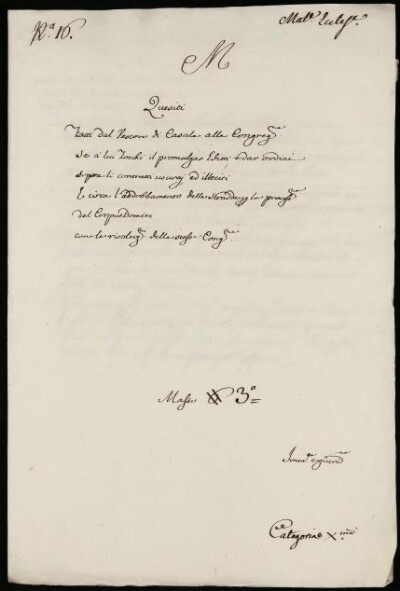 R.ta 16.
Mat.e Eccles.e
M
Quesiti
Fatti dal Vescovo di Casale alla Congreg.ne
Se a lui tocchi il promulgar Editti e dar ordini
sopra li contratti usuraj ed illeciti
E circa l'addobbamento delle strade per la process.e
del Corpus Domini
con le risoluz.i delle stesse Cong.ne
Mazzo 3.o
Categoria X.ma